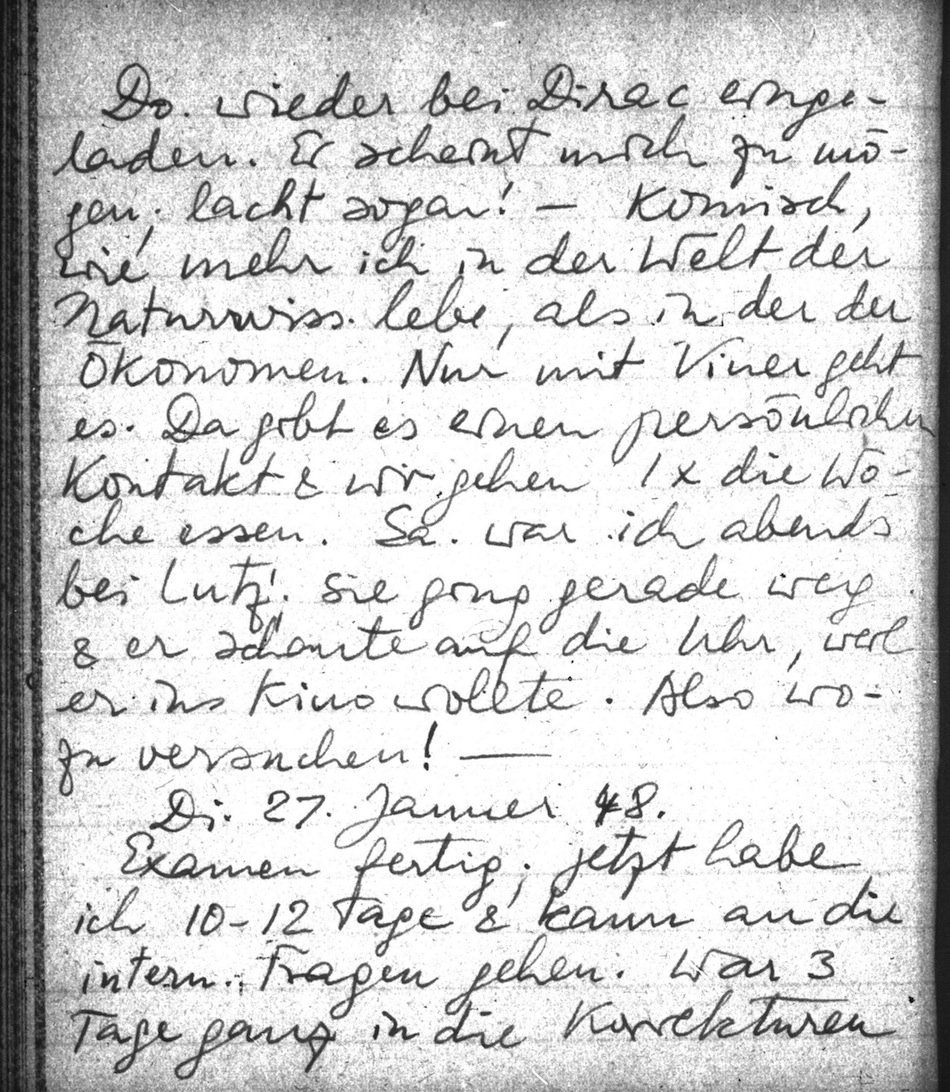 Do. wieder bei Dirac einge-
laden. Er scheint mich zu mö-
gen; lacht sogar! — Komisch,
wie mehr ich in der Welt der
Naturwiss. lebe, als in der der
Ökonomen. Nur mit Viner geht
es. Da gibt es einen persönlichen
Kontakt & wir gehen 1 x die Wo-
che essen. Sa. war ich abends
bei Lutz! Sie ging gerade weg
& er schaute auf die Uhr, weil
er ins Kino wollte. Also wo-
zu versuchen! —
Di. 27. Januer 48.
Examen fertig; jetzt habe
ich 10-12 Tage & kann an die
intern. Fragen gehen. War 3
Tage ganz in die Korrekturen